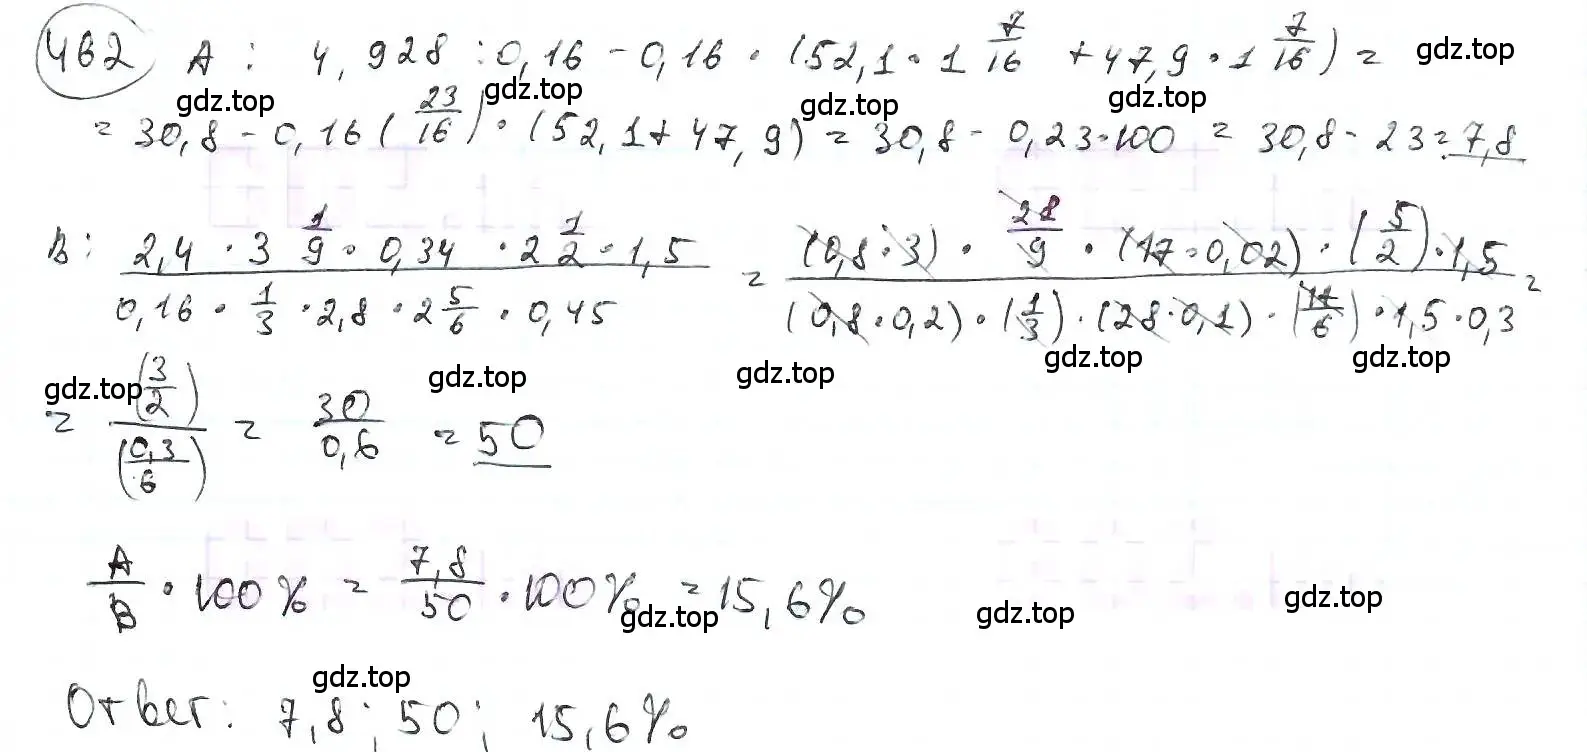 462 A: 4,928 : 0,16 - 0,16 · (52,1 · 1 7/16 + 47,9 · 1 7/16) = gdz.top
gdz.top gdz.top gdz.top gdz.top
= 30,8 - 0,16 (23/16) · (52,1 + 47,9) = 30,8 - 0,23·100 = 30,8 - 23 = 7,8
B: (2,4 · 3 1/9 · 0,34 · 2 1/2 · 1,5) / (0,16 · 1/3 · 2,8 · 2 5/6 · 0,45) = ((0,8 · 3) · 28/9 · (17 · 0,02) · (5/2) · 1,5) / ((0,8 · 0,2) · (1/3) · (28 · 0,1) · (17/6) · 1,5 · 0,3) =
gdz.top gdz.top gdz.top gdz.top gdz.top
= (3/2) / (0,3/6) = 30/0,6 = 50
A/B · 100% = 7,8/50 · 100% = 15,6%
gdz.top gdz.top gdz.top
gdz.top
Ответ: 7,8; 50; 15,6%